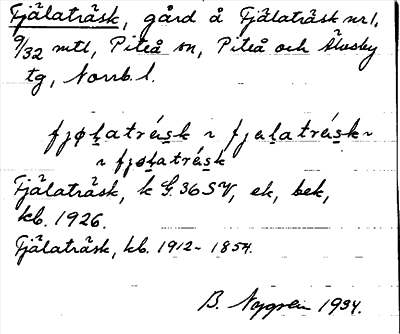 Fjälaträsk, gård å Fjälaträsk nr 1,
9/32 mtl, Piteå sn, Piteå och Älvsby
tg, Norrb. l.
fjøḷaträ́sk ~ fjäḷaträ́sk ~
~ fjøḷaträ́sk
Fjälaträsk, k G. 36 SV, ek, bek,
kb. 1926.
Fjälaträsk, kb. 1912-1854.
B. Nygren 1934.